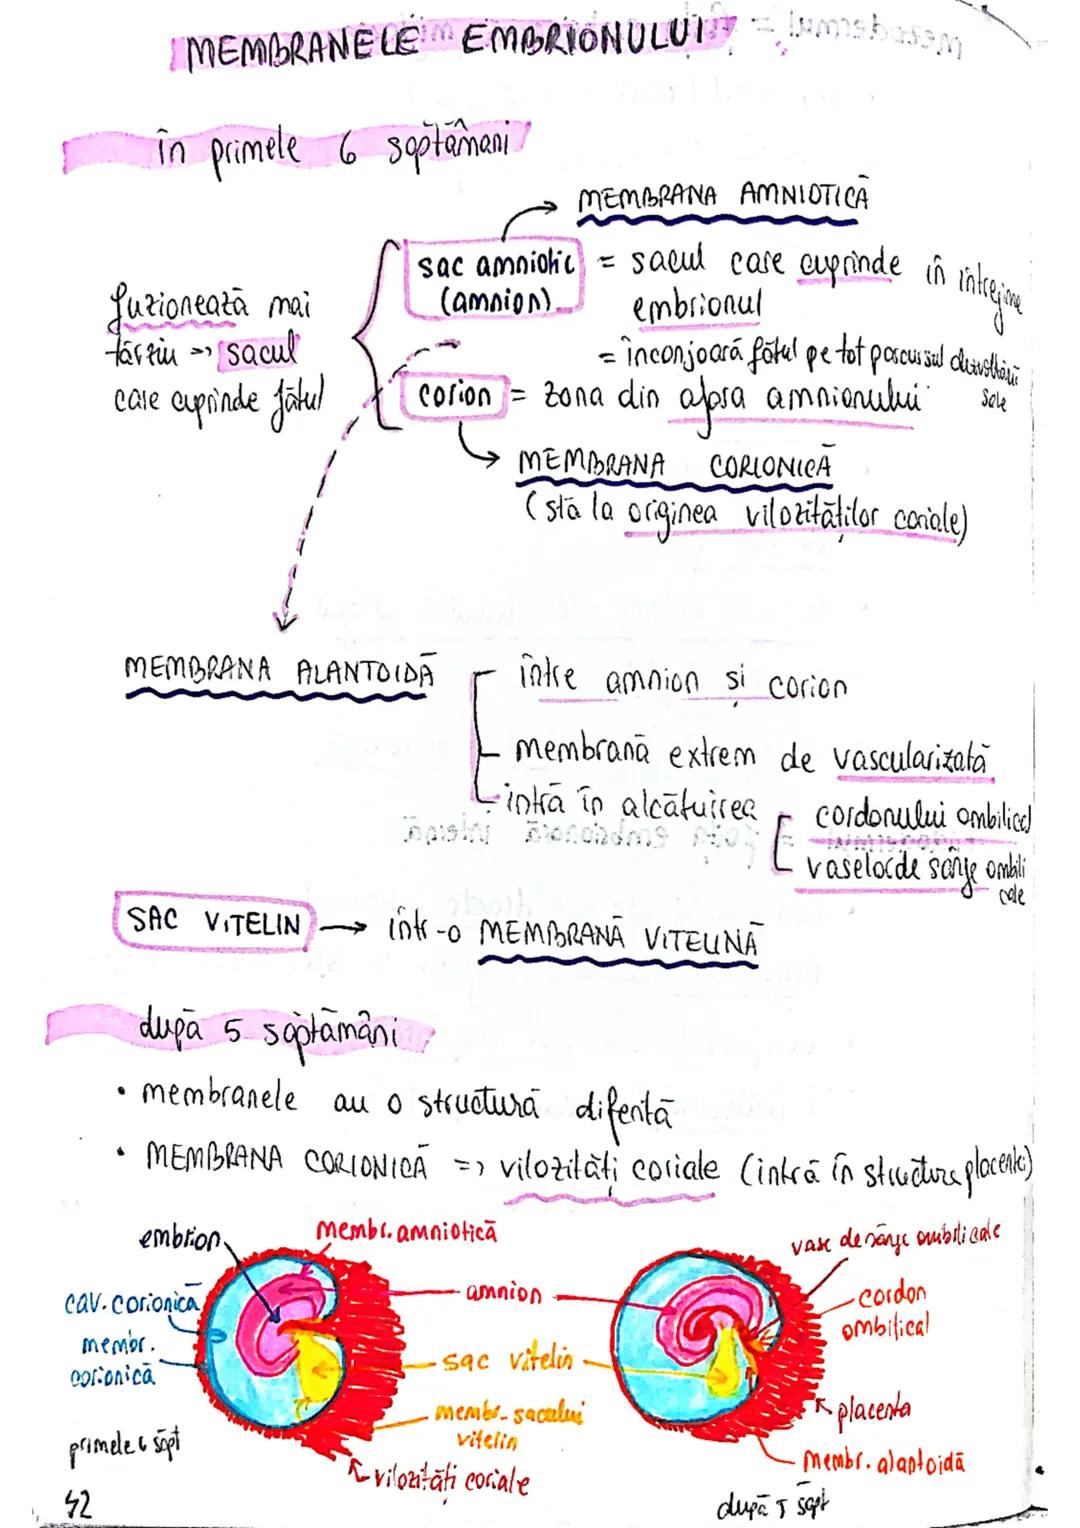 MEMBRANELE EMBRIONULUI
în primele 6 săptămâni
MEMBRANA AMNIOTICĂ
sac amniotic
(amnion)
= sacul care cuprinde în întregime
embrionul
= înconjoară fătul pe tot parcursul dezvoltării
sale
fuzionează mai
târziu => sacul
care cuprinde fătul
corion = zona din afara amnionului
MEMBRANA CORIONICĂ
(stă la originea vilozităților coriale)
MEMBRANA ALANTOIDĂ
între amnion și corion
membrană extrem de vascularizată
intră în alcătuirea
cordonului ombilical
vaselor de sânge ombili
cale
SAC VITELIN → într-o MEMBRANĂ VITELINĂ
după 5 săptămâni
• membranele au o structură diferită
• MEMBRANA CORIONICĂ => vilozități coriale (intră în structura placentei)
embrion
membr. amniotică
vase de sânge ombilicale
cav. corionică
amnion
cordon
ombilical
membr.
corionică
sac vitelin
membr. sacului
vitelin
placenta
primele 6 săpt
vilozități coriale
membr. alantoidă
după 5 săpt
42